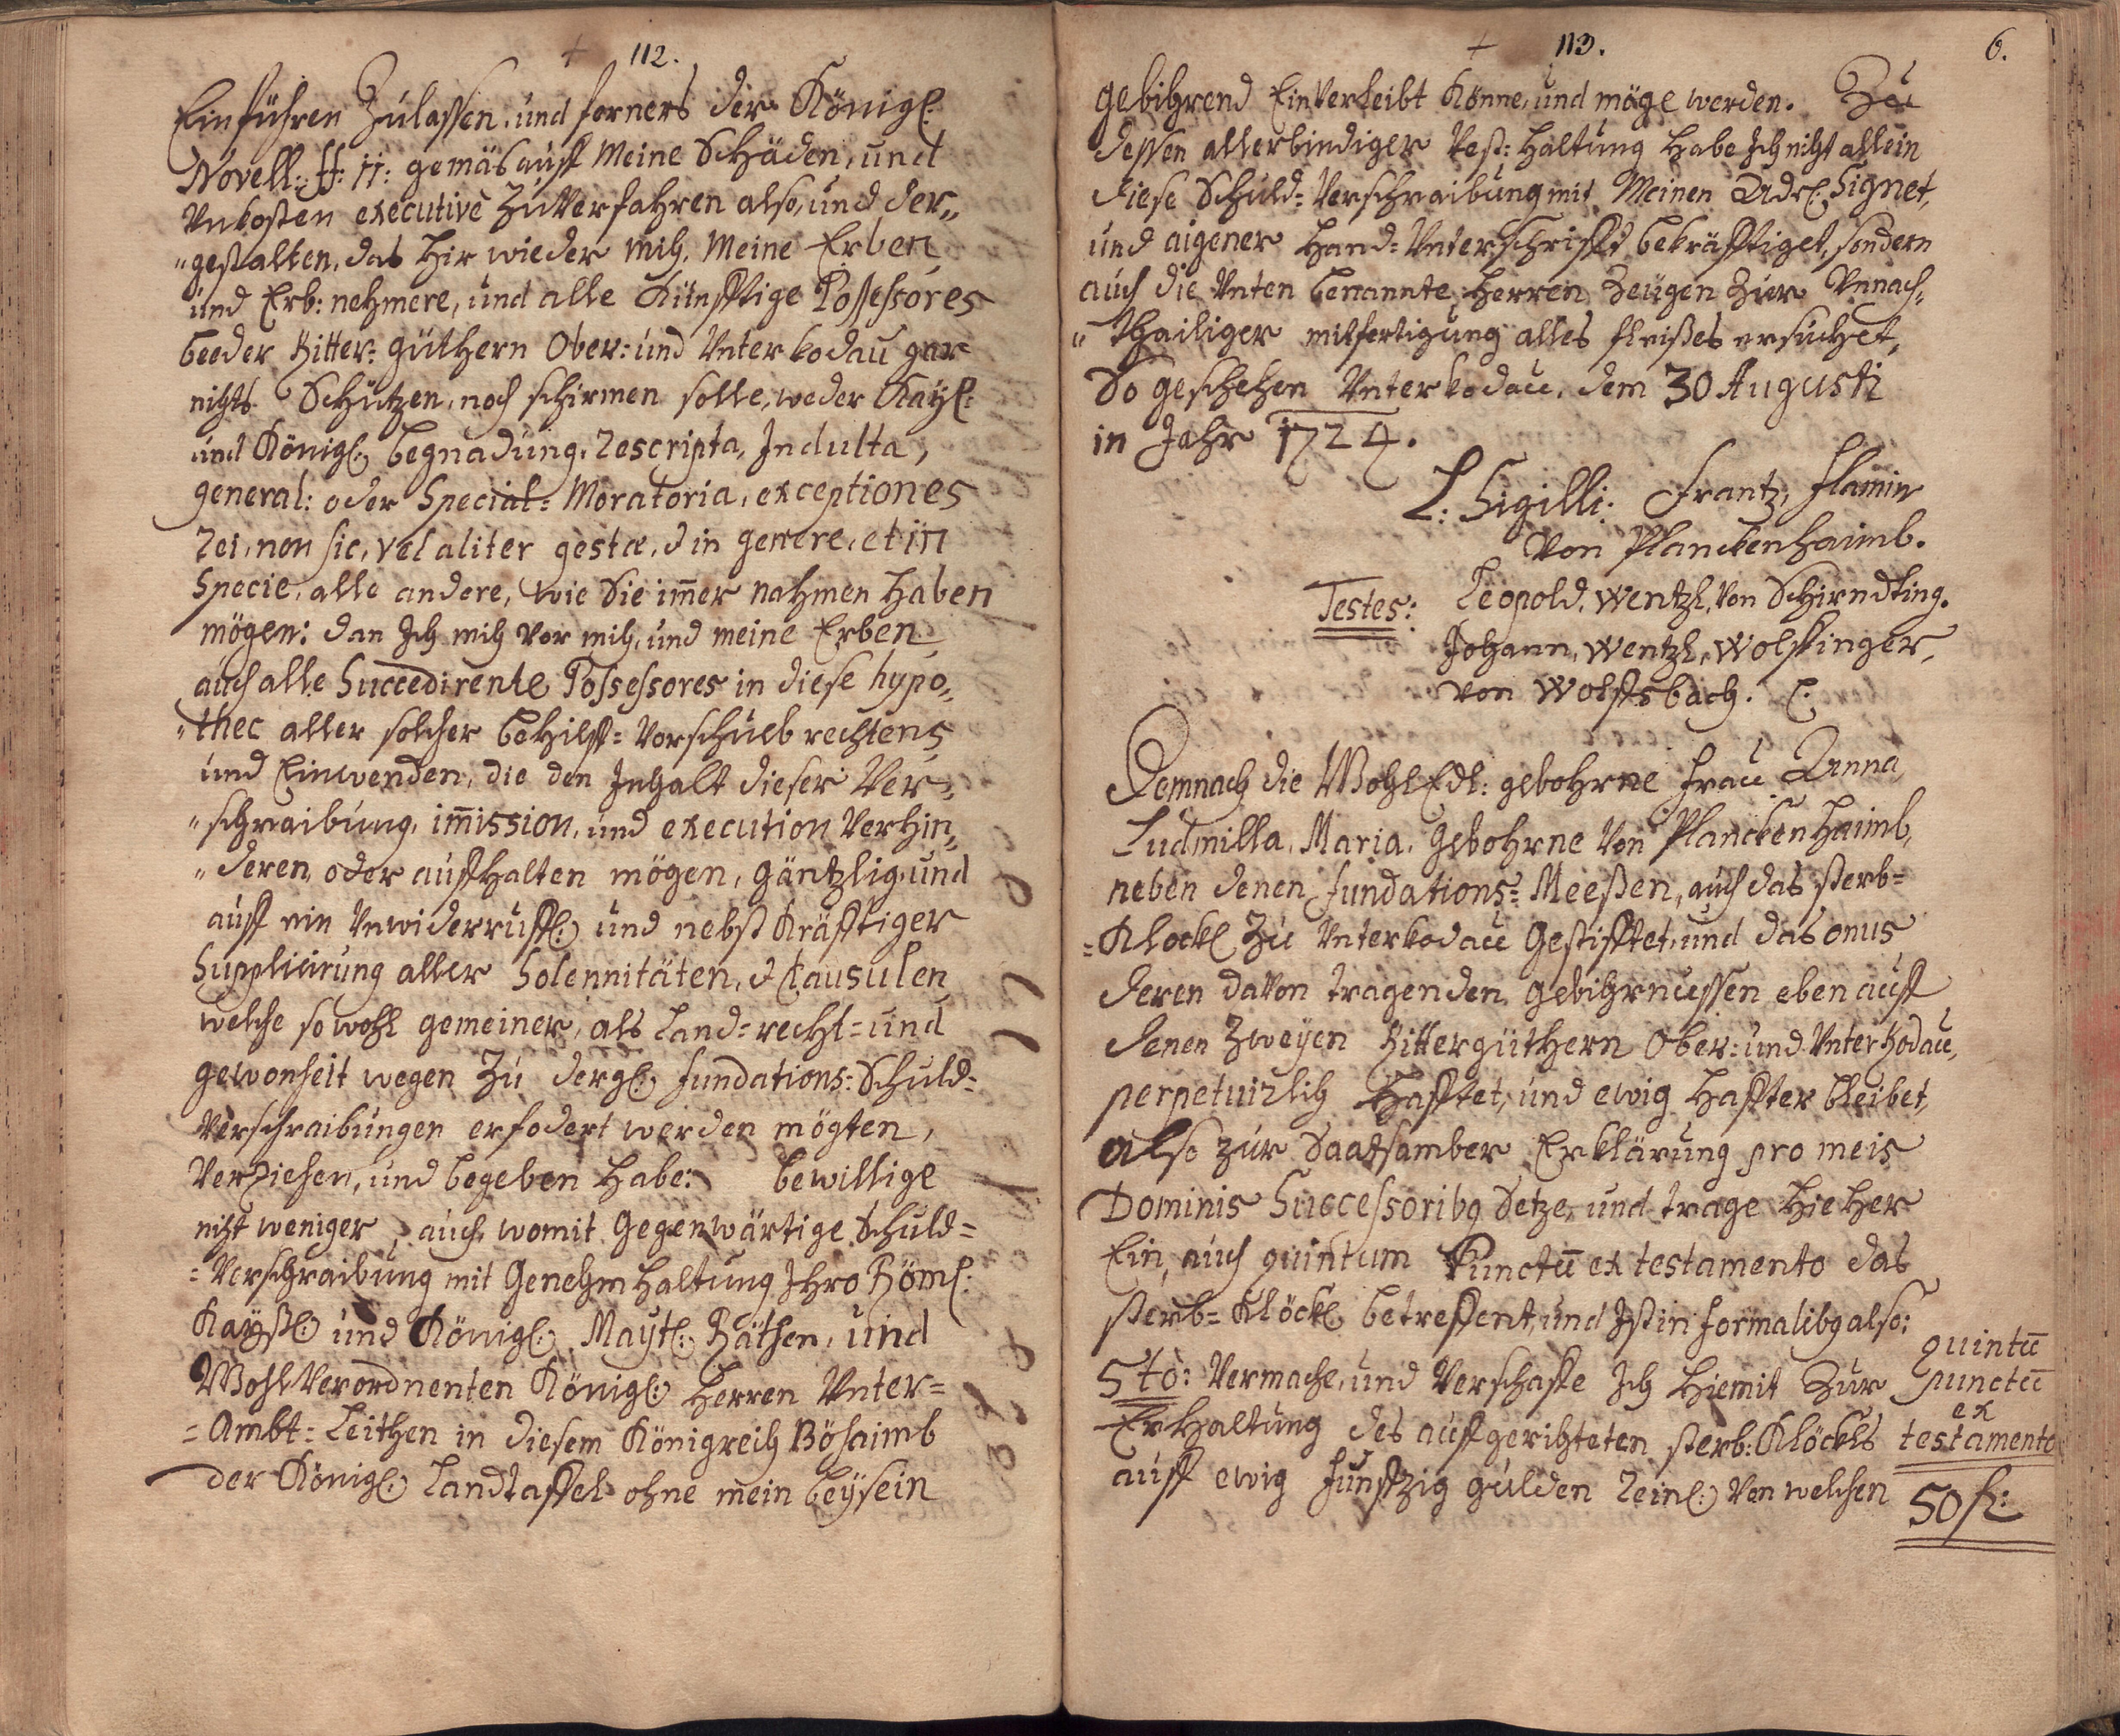 112.
Einführen Zulassen, und ferners der Königl:
Novell: ff: 11: gemäs auff Meine Schäden, und
Vnkosten executivè Zu Verfahren also, und der„
„gestalten, das hir wieder mich, Meine Erben,
und Erb: nehmere, und alle Künfftige Possessores
beeder Ritter: güthern Ober: und Vnterkodau gar
nichts Schützen, noch schirmen solle, weder Kayl:
und Königl: begnadung, Rescripta, Indulta,
general: oder Special: Moratoria, exceptiones
Rei, non sic, vel aliter gestæ, d in genere, et in
Specie, alle andere, wie Sie im̄er nahmen haben
mögen: dan Ich mich vor mich, und meine Erben
auch alle Succedirente Possessores in diese hypo„
„thec aller solcher behilff= Vorschueb rechtens
und Einwenden, die den Inhalt dieser Ver„
„schraibung, im̄ission, und execution Verhin„
„deren, oder auffhalten mögen, gäntzlig, und
auff ein Vnwiderruffl: und nebst Kräfftiger
Supplicirung aller Solennitäten, & Clausulen
welche so wohl gemeiner, als Land= recht= und
gewonheit wegen Zu dergl: fundations: Schuld=
Verschraibungen erfodert werden mögten,
Verziehen, und begeben habe: bewillige
nicht weniger, auch, womit Gegenwärtige Schuld=
=Verschraibung mit Genehmhaltung Ihro Röml:
Kaysl: und Königl: Mayt: Räthen, und
WohlVerordnenten Königl: Herren Vnter=
=Ambt= Leithen in diesem Königreich Böhaimb
der Königl: Landtaffel ohne mein beysein
113.
6.
gebihrend Einverleibt Könne, und möge werden. Zu
dessen allerbindiger Vest: haltung habe Ich nicht allein
diese Schuld= Verschraibung mit Meinen Adel: Signet,
und aigener Hand= Vnterschrifft bekräfftiget, sondern
auch die Vnten benannte Herren Zeugen Zur Vnnach„
„thailiger mitfertigung alles fleißes ersuchet,
So geschehen Vnterkodau, dem 30 Augusti
in Jahr 1724.
L: Sigilli: Frantz, Flamin
Von Planckenhaimb.
Testes: Leopold, Wentzl, Von Schirndting.
Johann, Wentzl, Wolffinger,
von Wolffsbach.
Demnach die WohlEdl: gebohrne Frau Anna,
Ludmilla, Maria, Gebohrne Von Planckenhaimb,
neben denen fundations= Meeßen, auch das sterb=
=Klöckl Zu Vnterkodau Gestifftet, und das onus
deren davon tragenden gebihrnussen eben auff
denen Zweyen Rittergüthern Ober: und Vnterkodau,
perpetuirlich hafftet, und ewig haffter bleibet,
also zur Saatsamber Erklärung pro meis
Dominis Successoribg Setze, und trage hieher
Ein, auch quintum Punctū ex testamento das
sterb= Klöckl betreffent, und Ist in formalibg also:
5to: Vermache, und Verschaffe Ich hiemit Zur
Erhaltung des auffgerichteten sterb: Klöckls
auff ewig funffzig gulden Reinl: Von welchen
quintū
punctū
ex
testamento
50 fl: